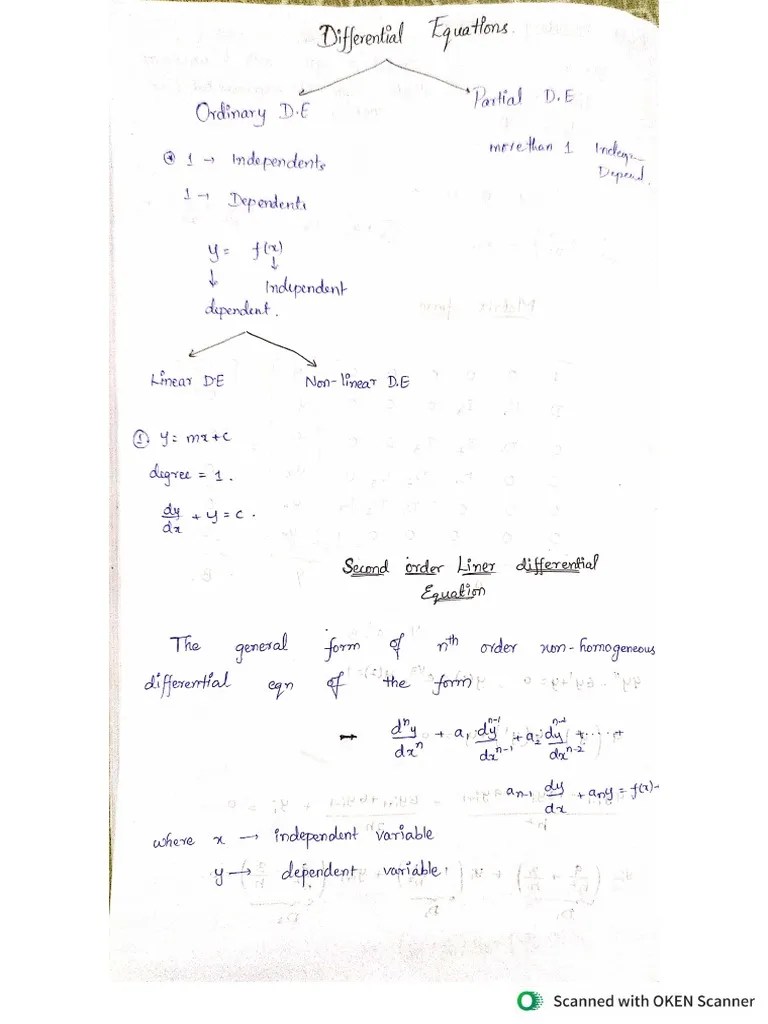 Differential Equations.
Ordinary D.E
Partial D.E
1 → Independents
more than 1 Indep
Depend.
1 → Dependents
y = f(x)
↓ ↓
Independent
dependent.
Linear DE Non-linear D.E
① y = mx+c
degree = 1.
dy/dx + y = c.
Second order Liner differential
Equation
The general form of nth order non-homogeneous
differential eqn of the form
d^n y/dx^n + a1 dy^n-1/dx^n-1 + a2 dy^n-2/dx^n-2 + ..... +
an-1 dy/dx + any = f(x)-
where x → independent variable
y → dependent variable.
Scanned with OKEN Scanner